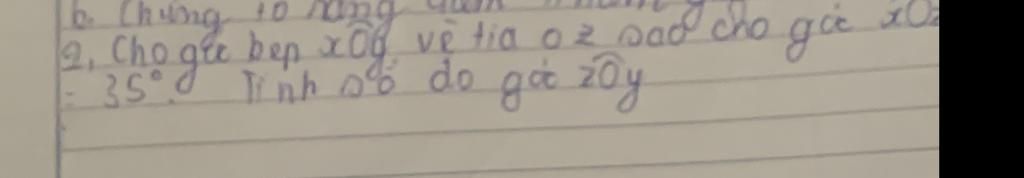 b. Chứng tỏ rằng
2, Cho góc bẹp xOy vẽ tia oz sao cho góc xOz
= 35°. Tính số đo góc zOy